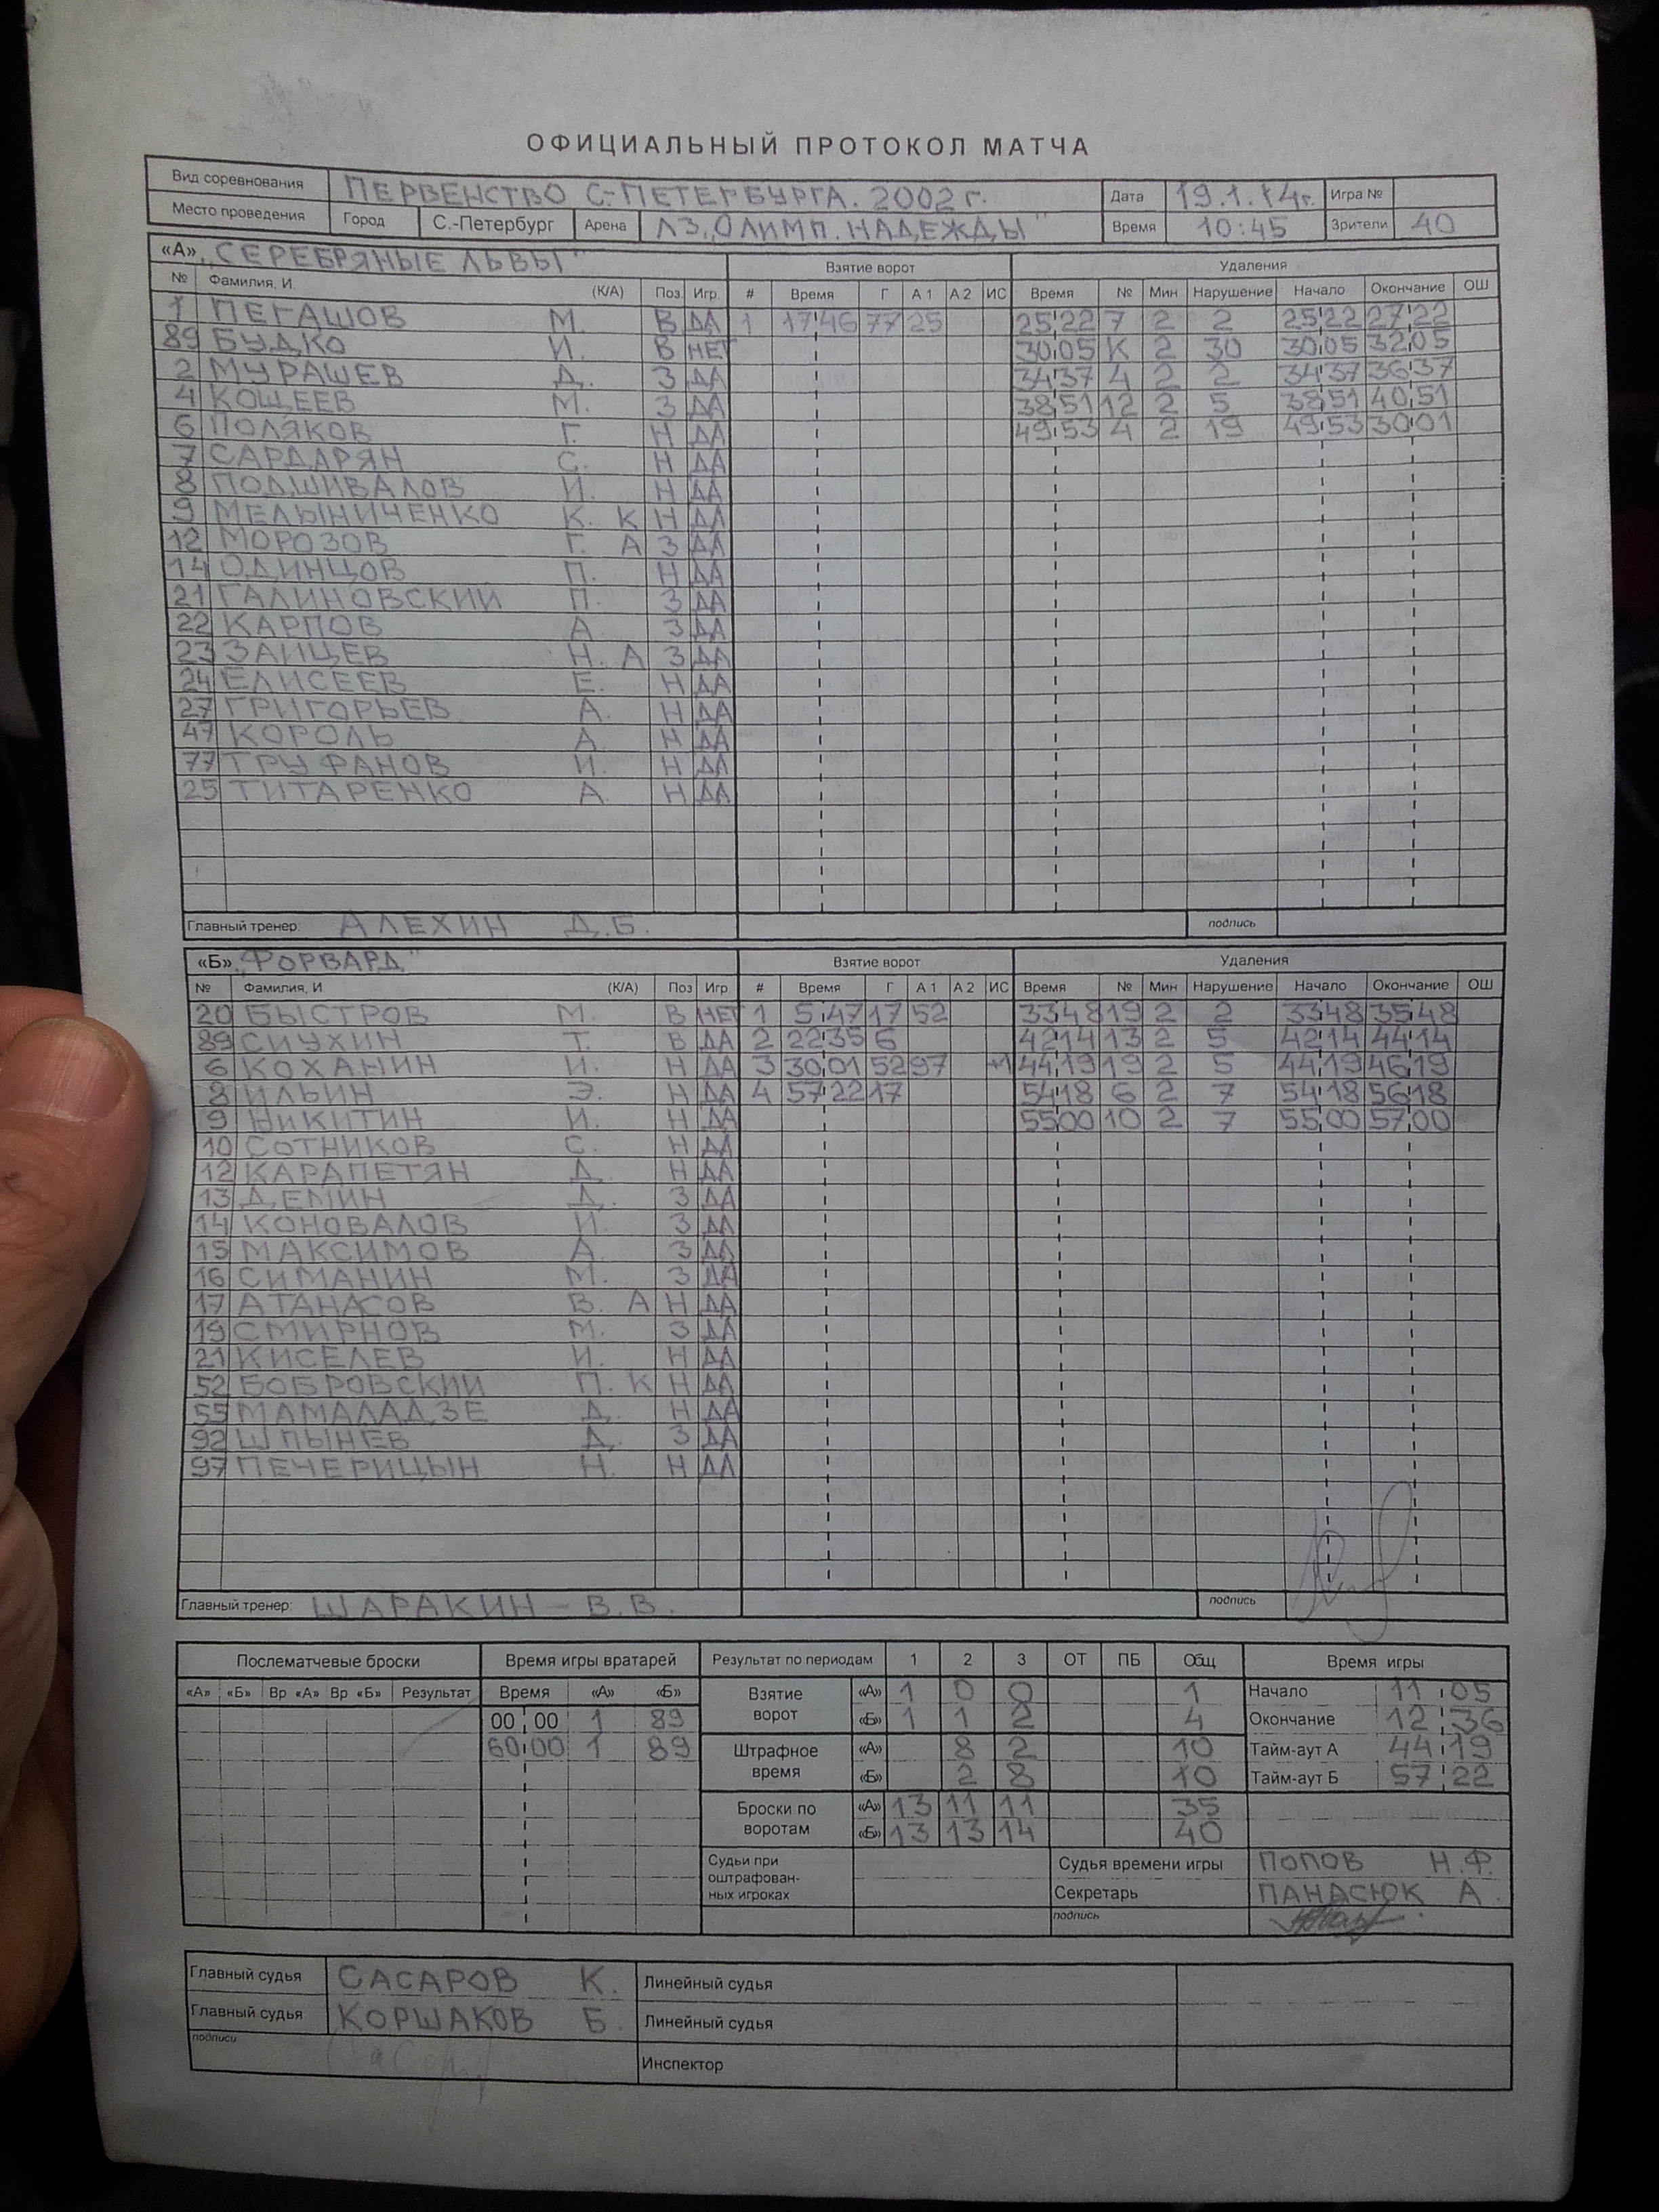 ОФИЦИАЛЬНЫЙ ПРОТОКОЛ МАТЧА
Вид соревнования ПЕРВЕНСТВО С.-ПЕТЕРБУРГА. 2002 г. Дата 19.1.14г. Игра №
Место проведения Город С.-Петербург Арена ЛЗ „ОЛИМП. НАДЕЖДЫ" Время 10:45 Зрители 40
«А» „СЕРЕБРЯНЫЕ ЛЬВЫ" Взятие ворот Удаления
№ Фамилия, И. (К/А) Поз Игр. # Время Г А 1 А 2 ИС Время № Мин Нарушение Начало Окончание ОШ
1 ПЕГАШОВ М. В ДА 1 17 46 77 25 25 22 7 2 2 25 22 27 22
89 БУДКО И. В НЕТ 30 05 К 2 30 30 05 32 05
2 МУРАШЕВ Д. З ДА 34 37 4 2 2 34 37 36 37
4 КОЩЕЕВ М. З ДА 38 51 12 2 5 38 51 40 51
6 ПОЛЯКОВ Г. Н ДА 49 53 4 2 19 49 53 30 01
7 САРДАРЯН С. Н ДА
8 ПОДШИВАЛОВ И. Н ДА
9 МЕЛЬНИЧЕНКО К. К Н ДА
12 МОРОЗОВ Г. А З ДА
14 ОДИНЦОВ П. Н ДА
21 ГАЛИНОВСКИЙ П. З ДА
22 КАРПОВ А. З ДА
23 ЗАЙЦЕВ Н. А З ДА
24 ЕЛИСЕЕВ Е. Н ДА
27 ГРИГОРЬЕВ А. Н ДА
47 КОРОЛЬ А. Н ДА
77 ТРУФАНОВ И. Н ДА
25 ТИТАРЕНКО А. Н ДА
Главный тренер: АЛЕХИН Д.Б. подпись
«Б» „ФОРВАРД" Взятие ворот Удаления
№ Фамилия, И (К/А) Поз Игр # Время Г А 1 А 2 ИС Время № Мин Нарушение Начало Окончание ОШ
20 БЫСТРОВ М. В НЕТ 1 5 47 17 52 33 48 19 2 2 33 48 35 48
89 СИУХИН Т. В ДА 2 22 35 6 42 14 13 2 5 42 14 44 14
6 КОХАНИН И. Н ДА 3 30 01 52 97 +1 44 19 19 2 5 44 19 46 19
8 ИЛЬИН Э. Н ДА 4 57 22 17 54 18 6 2 7 54 18 56 18
9 НИКИТИН И. Н ДА 55 00 10 2 7 55 00 57 00
10 СОТНИКОВ С. Н ДА
12 КАРАПЕТЯН Д. Н ДА
13 ДЕМИН Д. З ДА
14 КОНОВАЛОВ И. З ДА
15 МАКСИМОВ А. З ДА
16 СИМАНИН М. З ДА
17 АТАНАСОВ В. А Н ДА
19 СМИРНОВ М. З ДА
21 КИСЕЛЕВ И. Н ДА
52 БОБРОВСКИЙ П. К Н ДА
55 МАМАЛАДЗЕ Д. Н ДА
92 ШПЫНЕВ Д. З ДА
97 ПЕЧЕРИЦЫН Н. Н ДА
Главный тренер: ШАРАКИН - В.В. подпись
Послематчевые броски Время игры вратарей Результат по периодам 1 2 3 ОТ ПБ Общ Время игры
«А» «Б» Вр «А» Вр «Б» Результат Время «А» «Б» Взятие ворот «А» 1 0 0 1 Начало 11 05
00 00 1 89 «Б» 1 1 2 4 Окончание 12 36
60 00 1 89 Штрафное время «А» 8 2 10 Тайм-аут А 44 19
«Б» 2 8 10 Тайм-аут Б 57 22
Броски по воротам «А» 13 11 11 35
«Б» 13 13 14 40
Судьи при оштрафован- ных игроках Судья времени игры ПОПОВ Н.Ф.
Секретарь ПАНАСЮК А.
подпись
Главный судья САСАРОВ К. Линейный судья
Главный судья КОРШАКОВ Б. Линейный судья
подписи
Инспектор